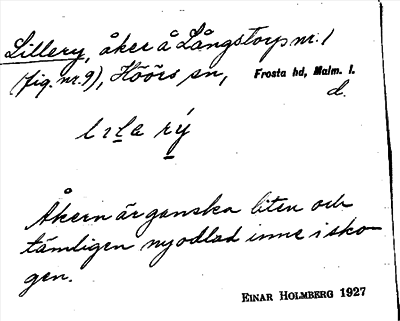 Lillery, åker å Långstorp nr. 1
(fig. nr. 9), Höörs sn, Frosta hd, Malm. l.
d.
lıla rý
Åkern är ganska liten och
tämligen nyodlad inne i sko-
gen.
EINAR HOLMBERG 1927